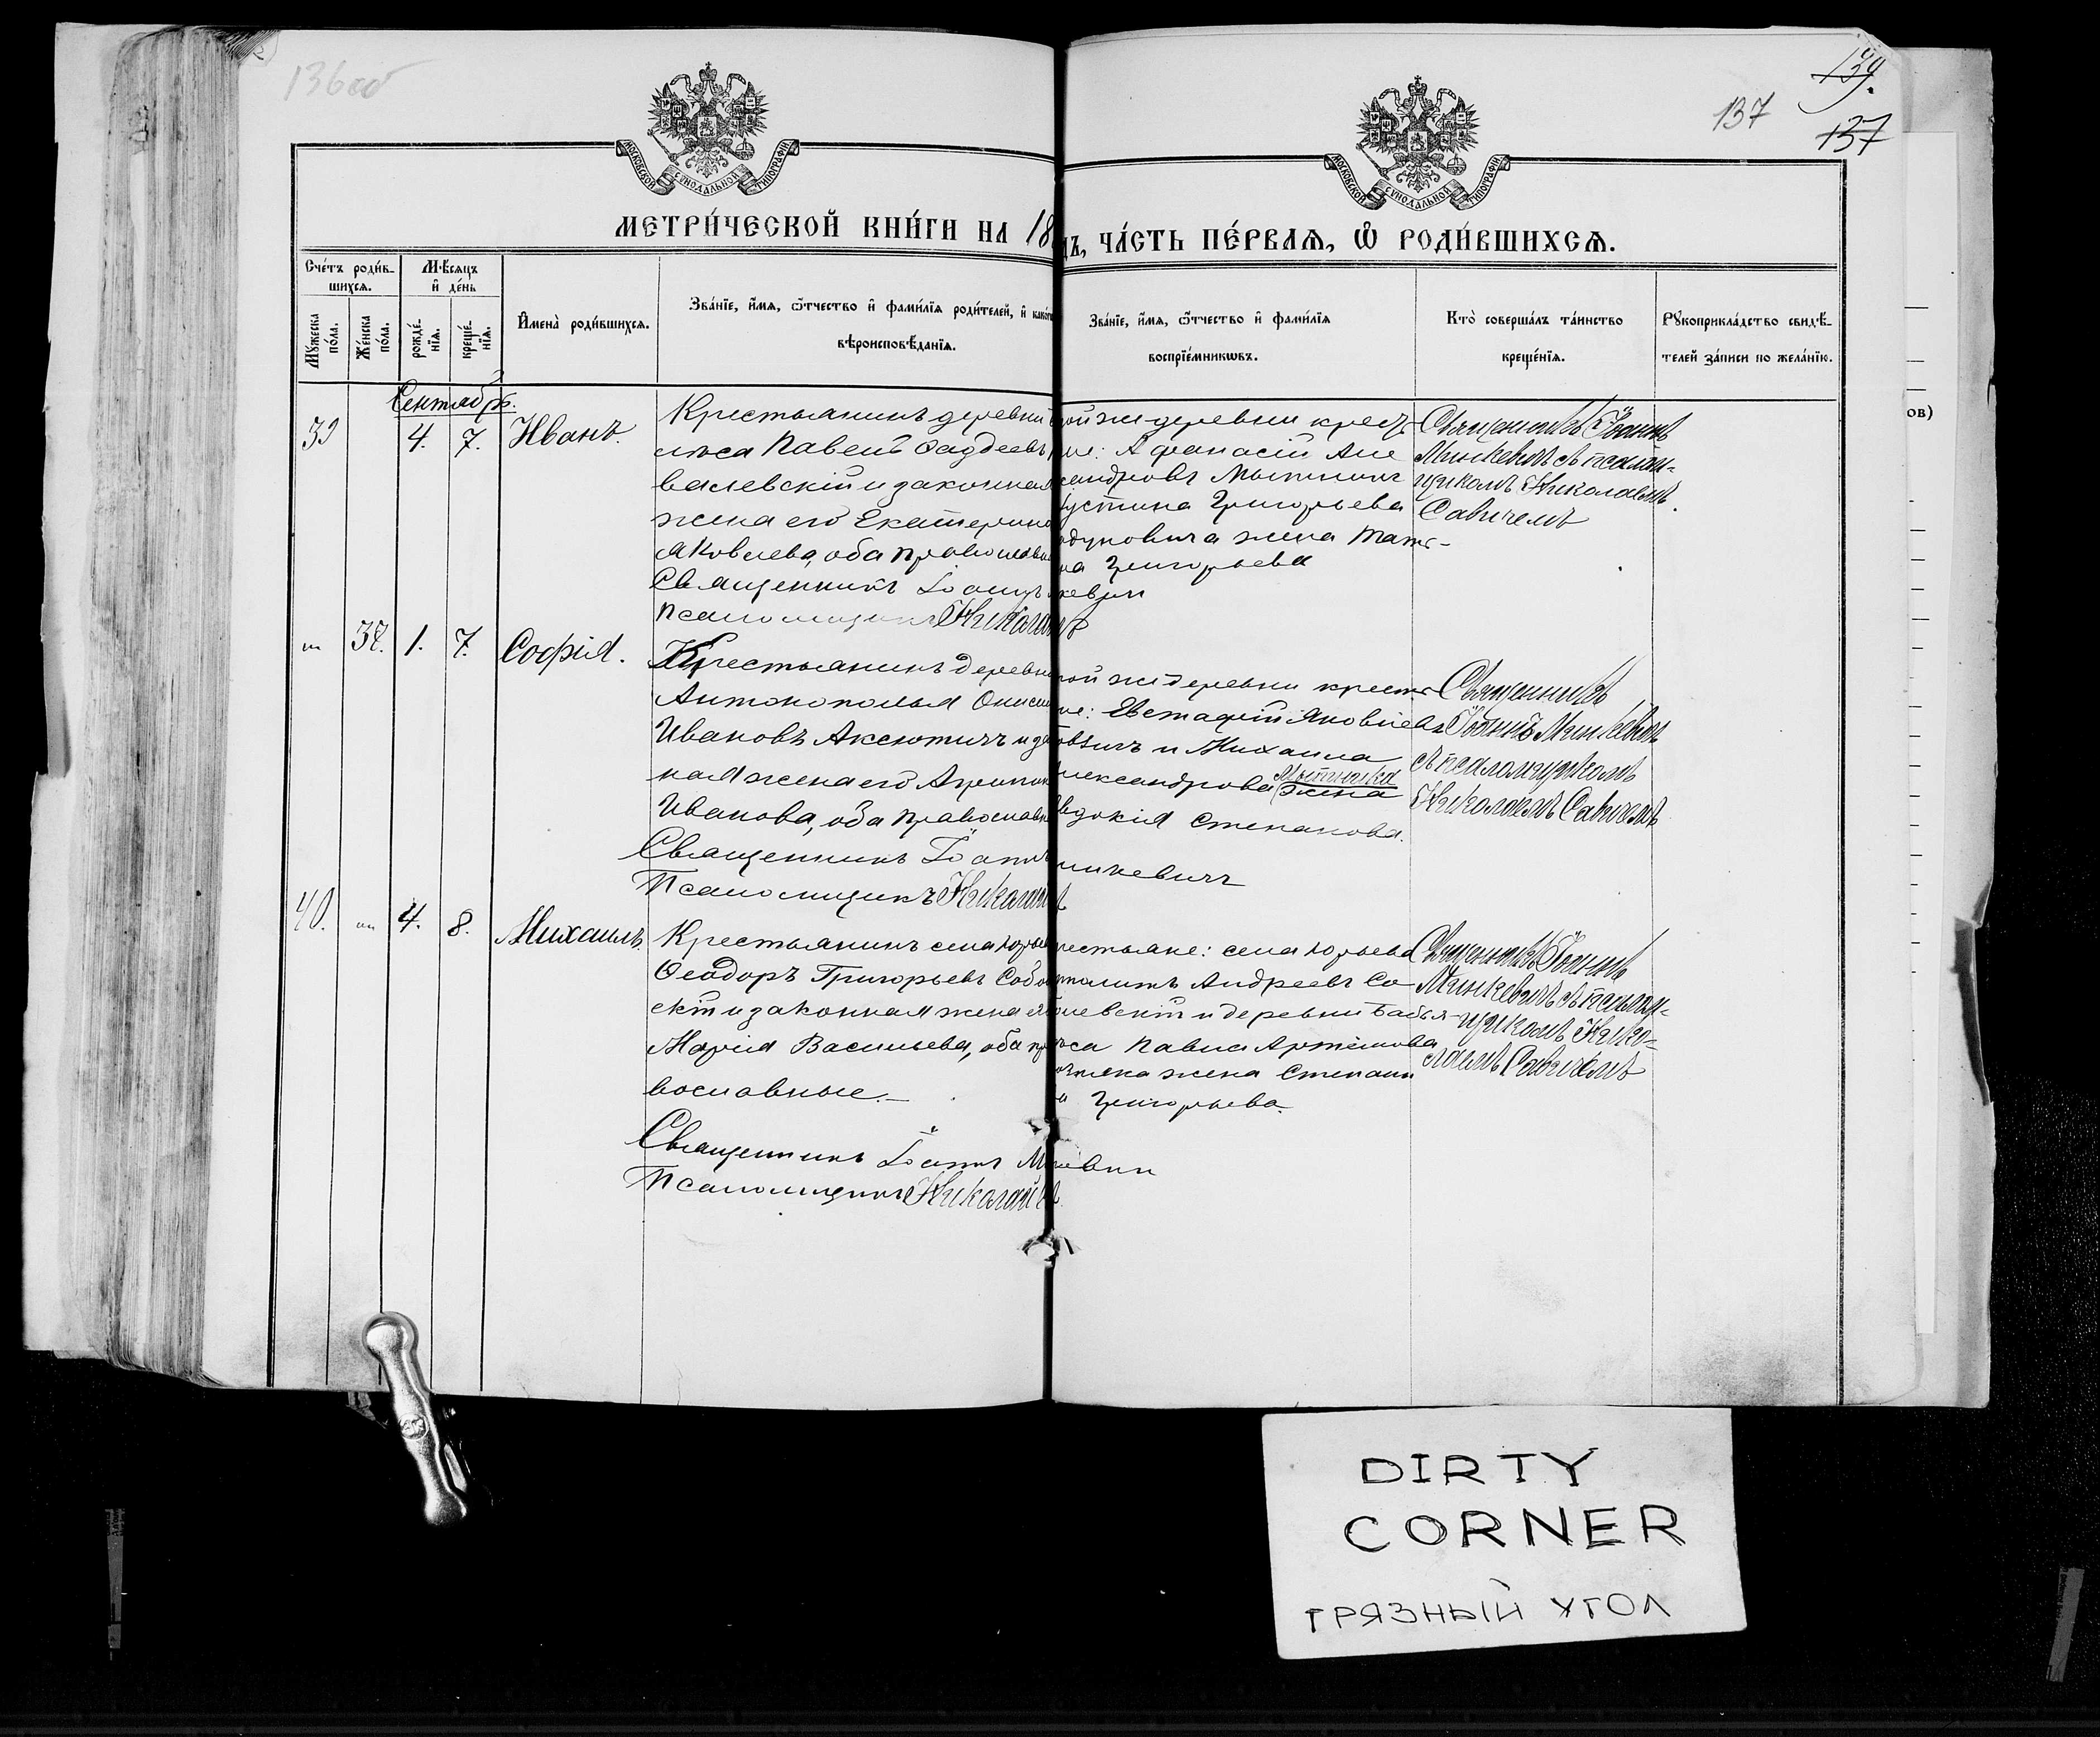 136об
139.
137
137
МОСКОВСКОЙ СѴНОДАЛЬНОЙ ТИПОГРАФІИ
МОСКОВСКОЙ СѴНОДАЛЬНОЙ ТИПОГРАФІИ
МЕТРИ́ЧЕСКОЙ КНИ́ГИ НА 18
ДЪ, ЧА́СТЬ ПЕ́РВАѦ, Ѡ РОДИ́ВШИХСѦ.
Сче́тъ роди́в-
шихсѧ.
Мѣ́сѧцъ
и҆ де́нь
Мꙋ́жеска по́ла.
Же́нска по́ла.
рожде́-
нїѧ.
креще́-
нїѧ.
И҆мена̀ роди́вшихсѧ.
Зва́нїе, и҆́мѧ, ѻ҆́тчество и҆ фами́лїѧ роди́телей, и҆ како́гѡ
вѣроисповѣ́данїѧ.
Зва́нїе, и҆́мѧ, ѻ҆́тчество и҆ фами́лїѧ
воспрїе́мникѡвъ.
Кто̀ соверша́лъ та́инство
креще́нїѧ.
Рꙋкоприкла́дство свидѣ́-
телей за́писи по жела́нїю.
Сентябрь.
39
4.
7.
Иванъ.
Крестьянинъ деревни
лѣса Павелъ Фаддеевъ
валевскій и законная
жена его Екатерина
Яковлева, оба православн
Священникъ Іоаннъ
Псаломщикъ Николай
ой же деревни крест
не: Афанасій Але
сандровъ Мытникъ
устина Григорьева
жена Тать-
на Григорьева
кевич
Священникъ Іоаннъ
Минкевичъ съ псалом-
щикомъ Николаемъ
Савичемъ
38.
1.
7.
Софія.
Крестьянинъ деревни
Антонополья Онисим
Ивановъ Аксютичъ и за
ная жена его Агрипин
Иванова, оба православн
Священникъ Іоаннъ
Псаломщикъ Николай
ой же деревни крестья
не: Евстафій Яковлевъ
овичъ и Михаила
лександрова Мытника
жена
вдокія Степанова.
инкевичъ
Священникъ
Іоаннъ Минкевичъ
съ псаломщикомъ
Николаемъ Савичемъ
40.
4.
8.
Михаилъ.
Крестьянинъ села Юрьев
Ѳеодоръ Григорьевъ Собо
скій и законная жена ег
Марія Васильева, оба пр
вославные.
Священникъ Іоаннъ М
Псаломщикъ Николай
рестьяне: села Юрьева
Андреевъ Со
левскій и деревни Бабья-
ѣса Павла Артемова
жена Степани
а Григорьева.
евич
Священникъ Іоаннъ
Минкевичъ съ псалом-
щикомъ Нико-
лаемъ Савичемъ
ов)
DIRTY
CORNER
ГРЯЗНЫЙ УГОЛ